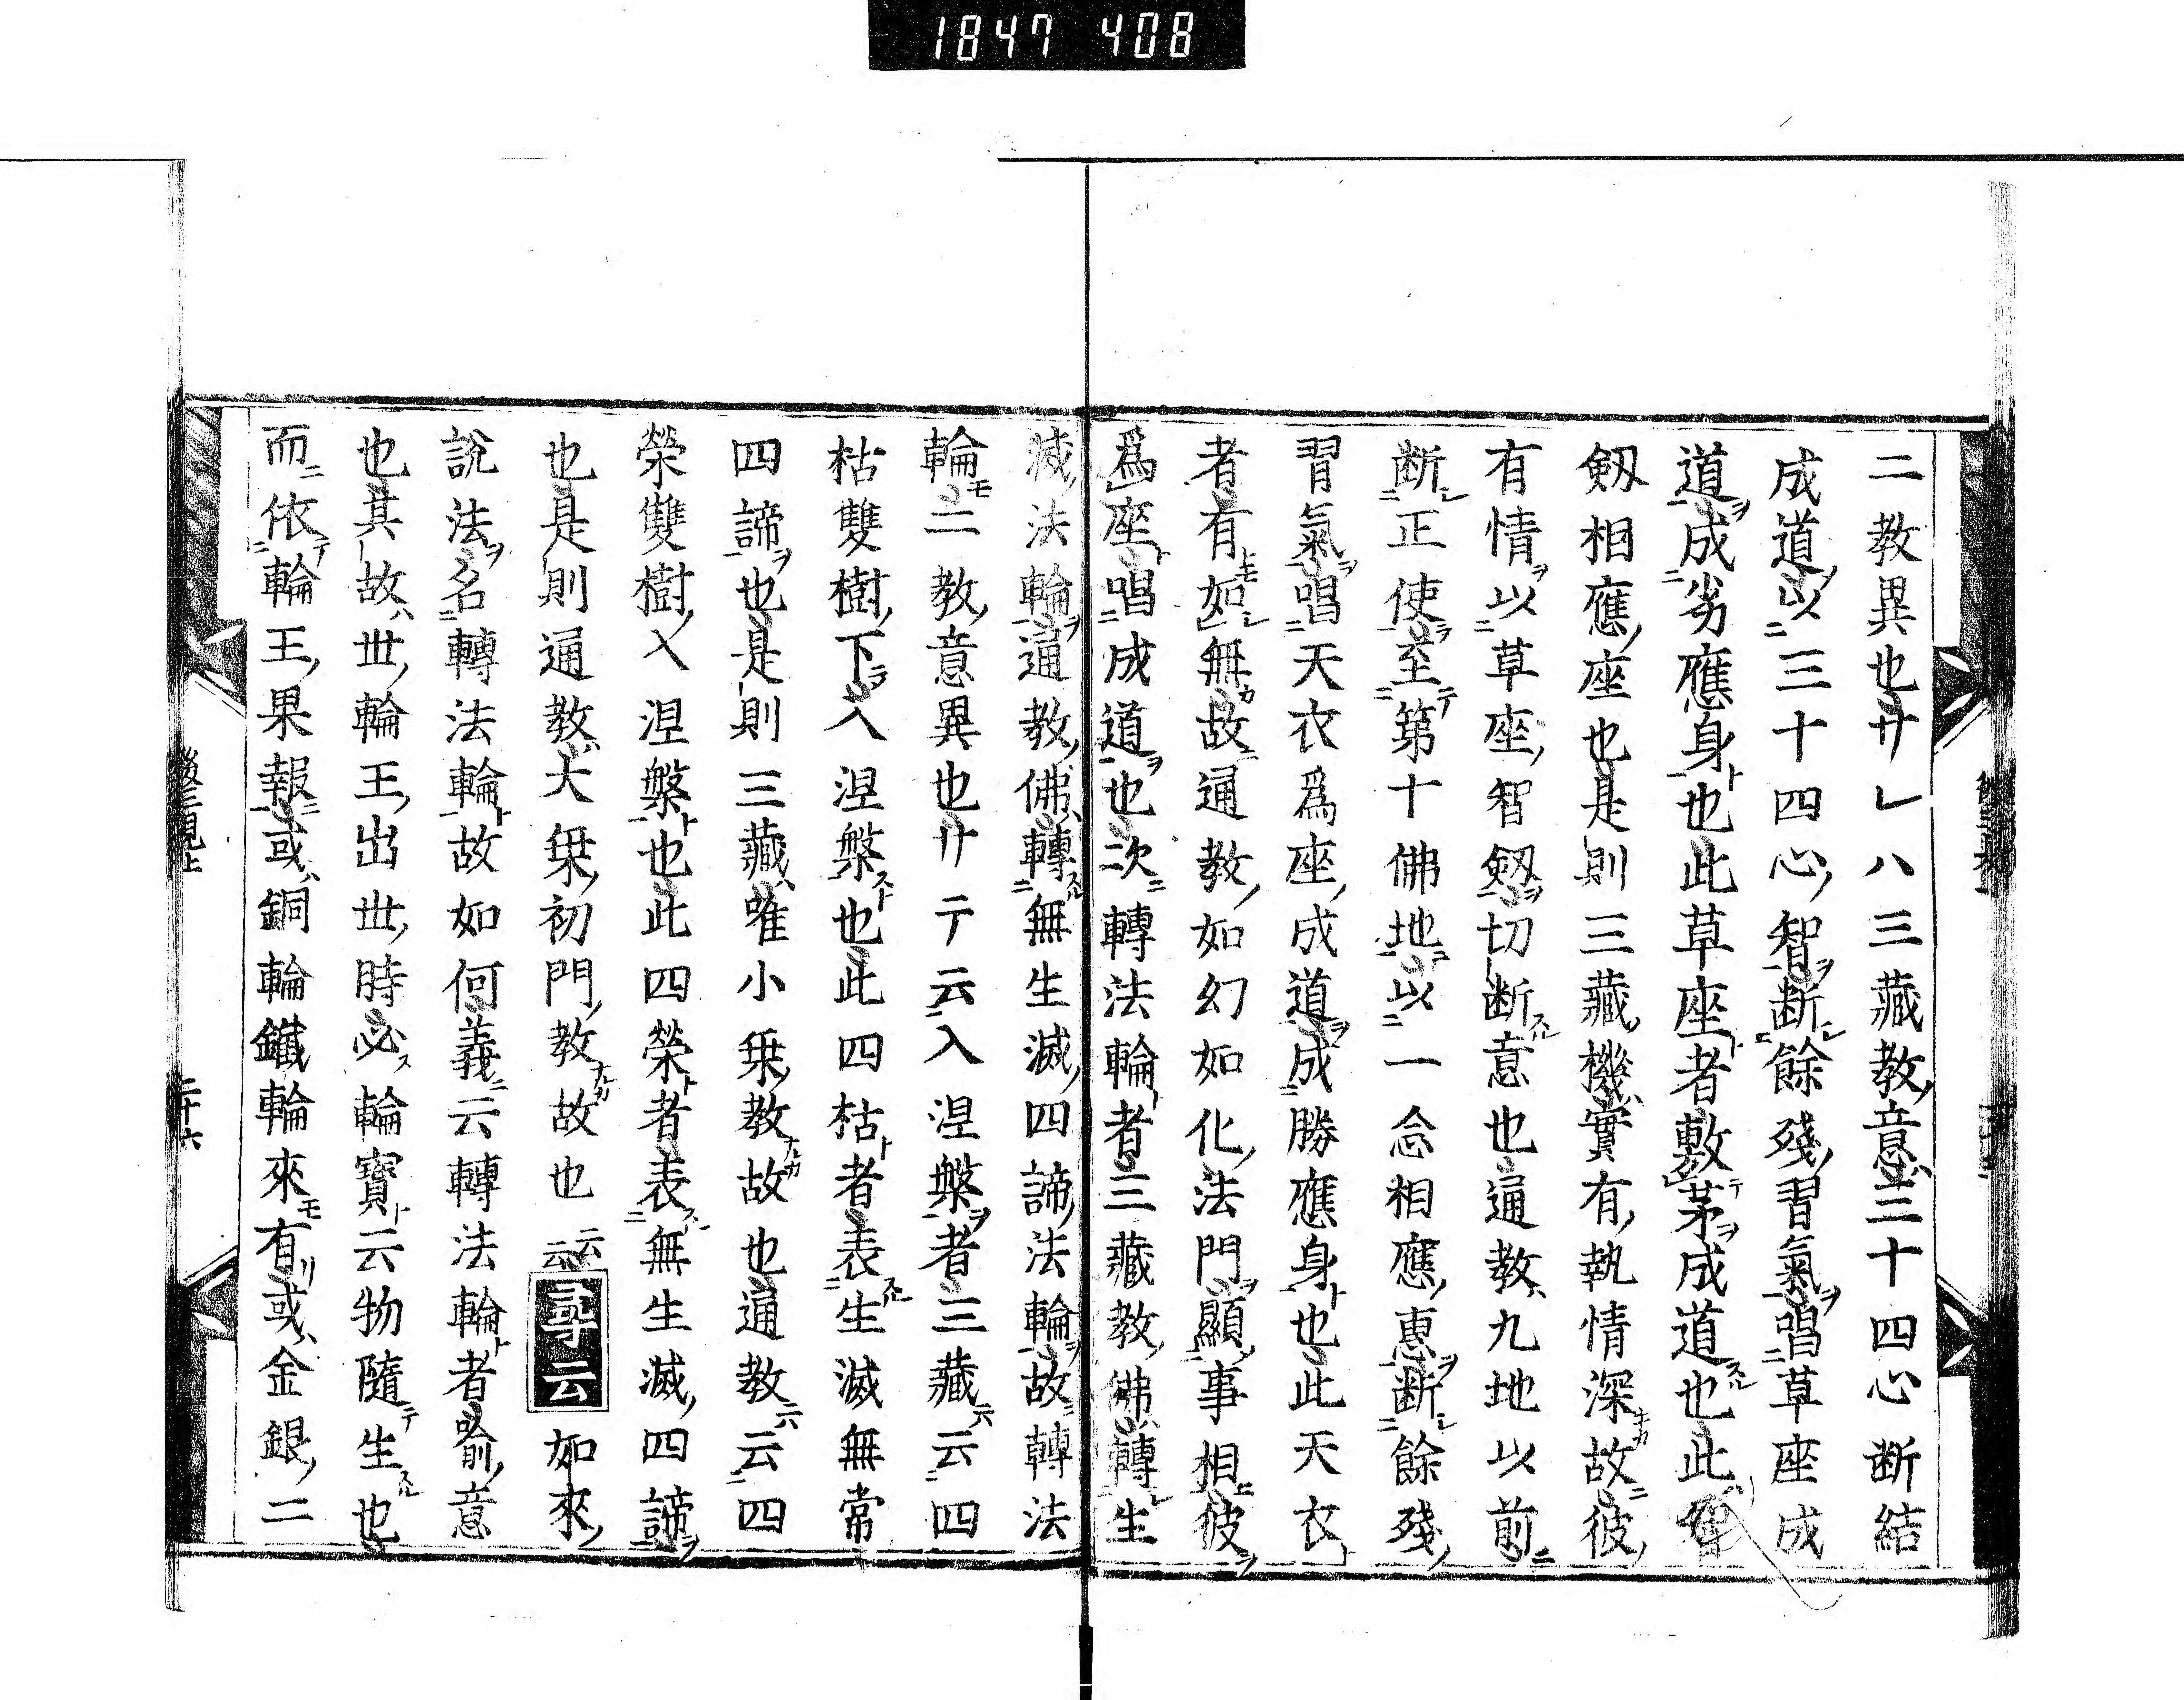 1847 408
二教異也サレハ三藏教意三十四心断結
成道以三十四心智断餘殘習氣唱草座成
道成劣應身也此草座者敷茅成道也此智
剱相應座也是則三藏機實有執情深故彼
有情以草座智剱切断意也通教九地以前
断正使至第十佛地以一念相應惠断餘殘
習氣唱天衣爲座成道成勝應身也此天衣
者有如無故通教如幻如化法門顯事相彼
爲座唱成道也次轉法輪者三藏教佛轉生
滅法輪通教佛轉無生滅四諦法輪故轉法
輪二教意異也サテ云入涅槃者三藏云四
枯雙樹下入涅槃也此四枯者表生滅無常
四諦也是則三藏唯小乗教故也通教云四
榮雙樹入涅槃也此四榮者表無生滅四諦
也是則通教大乗初門教故也云云尋云如來
說法名轉法輪故如何義云轉法輪者喩意
也其故世輪王出世時必輪寳云物隨生也
而依輪王果報或銅輪鐵輪來有或金銀二
二十六